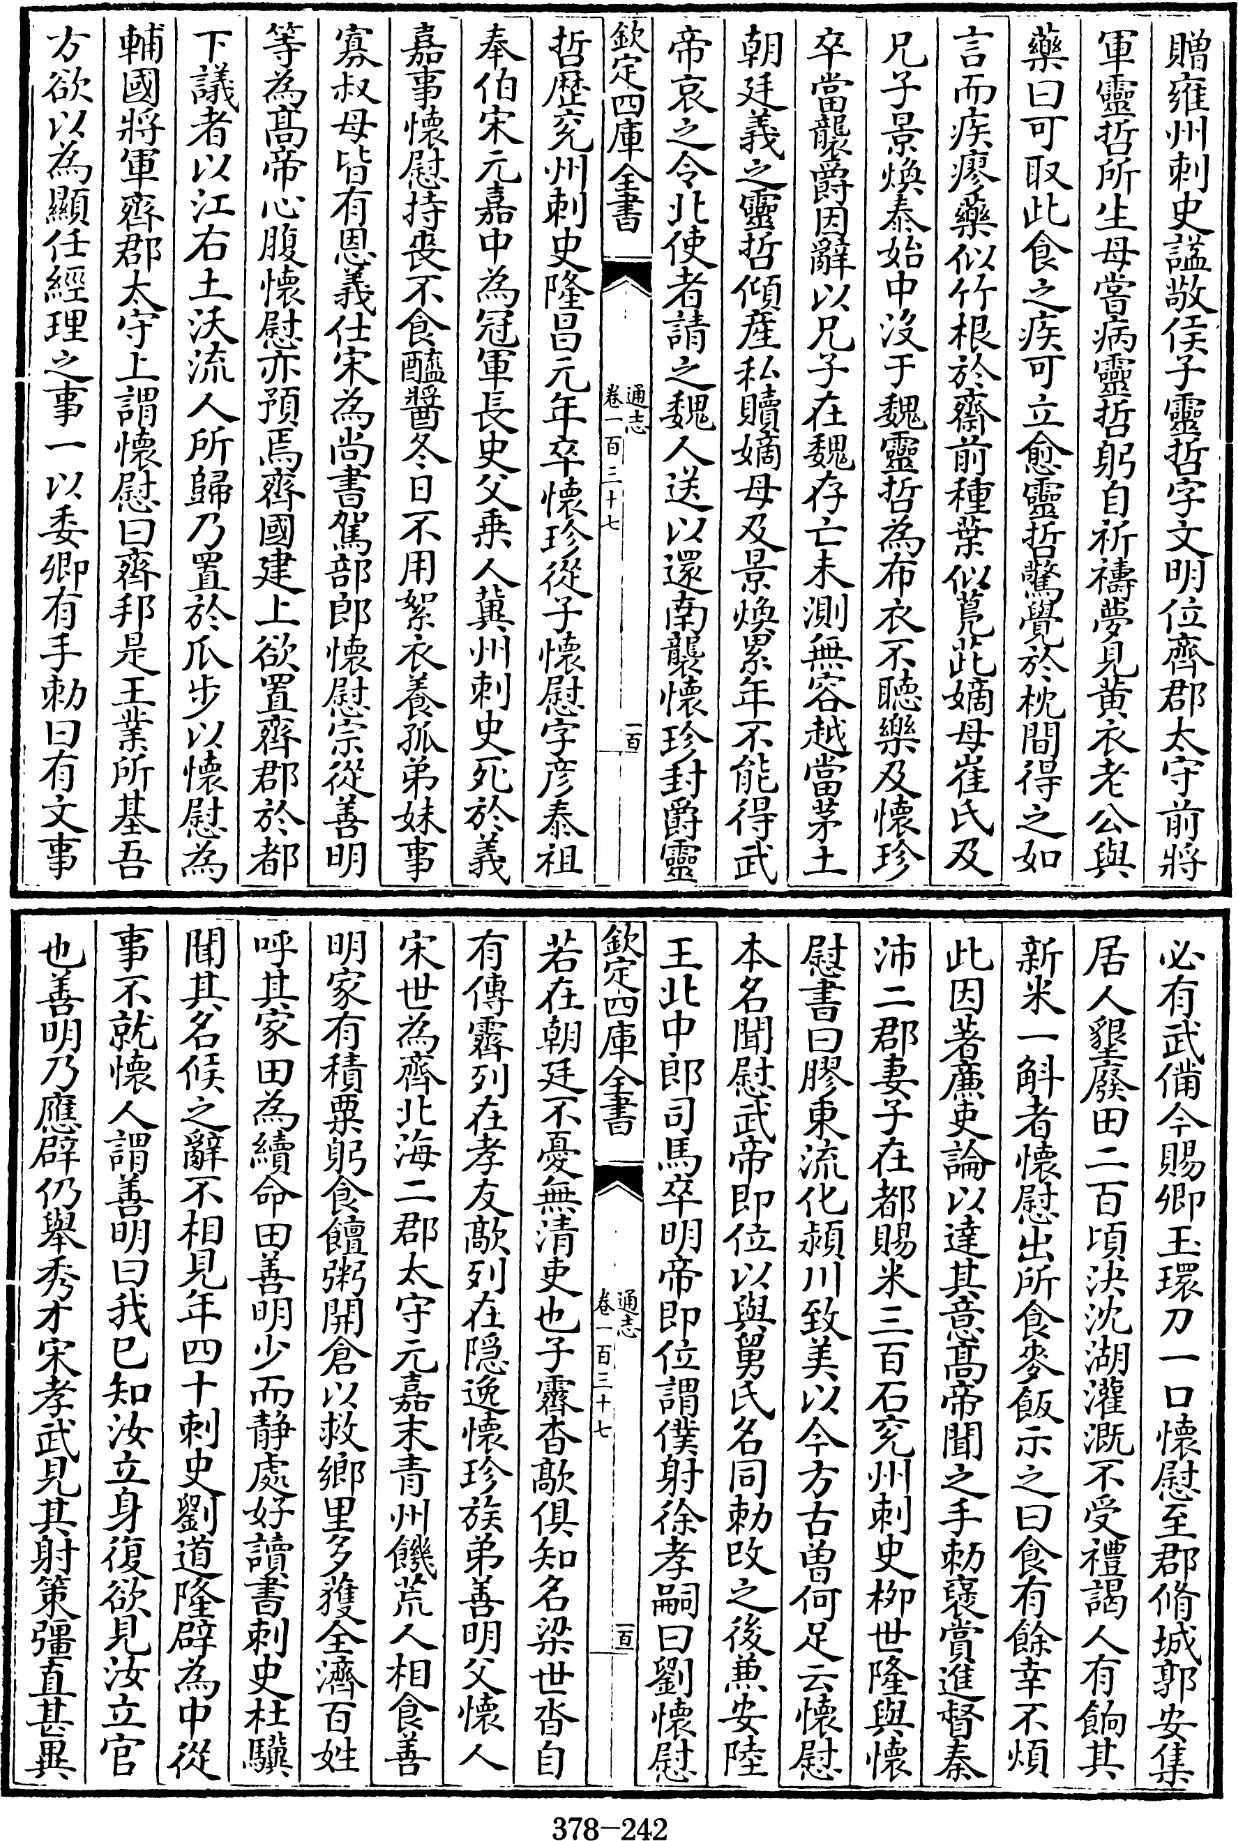 贈雍州刺史諡敬侯子靈哲字文明位齊郡太守前將
軍靈哲所生母嘗病靈哲躬自祈禱夢見黄衣老公與
藥曰可取此食之疾可立愈靈哲驚覺於枕間得之如
言而疾瘳藥似竹根於齋前種葉似莧茈嫡母崔氏及
兄子景煥泰始中沒于魏靈哲為布衣不聽樂及懷珍
卒當襲爵因辭以兄子在魏存亡未測無容越當茅土
朝廷義之靈哲傾産私贖嫡母及景煥累年不能得武
帝哀之令北使者請之魏人送以還南襲懷珍封爵靈
欽定四庫全書
通志
卷一百三十七
一百
哲歴兖州刺史隆昌元年卒懷珍從子懷慰字彦泰祖
奉伯宋元嘉中為冠軍長史父乗人冀州刺史死於義
嘉事懷慰持喪不食醯醬冬日不用絮衣養孤弟妹事
寡叔母皆有恩義仕宋為尚書駕部郎懷慰宗從善明
等為髙帝心腹懷慰亦預焉齊國建上欲置齊郡於都
下議者以江右土沃流人所歸乃置於瓜步以懷慰為
輔國將軍齊郡太守上謂懷慰曰齊邦是王業所基吾
方欲以為顯任經理之事一以委卿有手勅曰有文事
必有武備今賜卿玉環刀一口懷慰至郡脩城郭安集
居人墾廢田二百頃決沈湖灌溉不受禮謁人有餉其
新米一斛者懷慰出所食麥飯示之曰食有餘幸不煩
此因著亷吏論以達其意髙帝聞之手勅褒賞進督秦
沛二郡妻子在都賜米三百石兖州刺史柳世隆與懷
慰書曰膠東流化潁川致美以今方古曽何足云懷慰
本名聞慰武帝即位以與舅氏名同勅改之後兼安陸
王北中郎司馬卒明帝即位謂僕射徐孝嗣曰劉懷慰
欽定四庫全書
通志
卷一百三十七
一百
若在朝廷不憂無清吏也子霽杳歊俱知名梁世杳自
有傳霽列在孝友歊列在隠逸懷珍族弟善明父懷人
宋世為齊北海二郡太守元嘉末青州饑荒人相食善
明家有積粟躬食饘粥開倉以救鄉里多獲全濟百姓
呼其家田為續命田善明少而静處好讀書刺史杜驥
聞其名候之辭不相見年四十刺史劉道隆辟為中從
事不就懷人謂善明曰我已知汝立身復欲見汝立官
也善明乃應辟仍舉秀才宋孝武見其射策彊直甚異
378-242